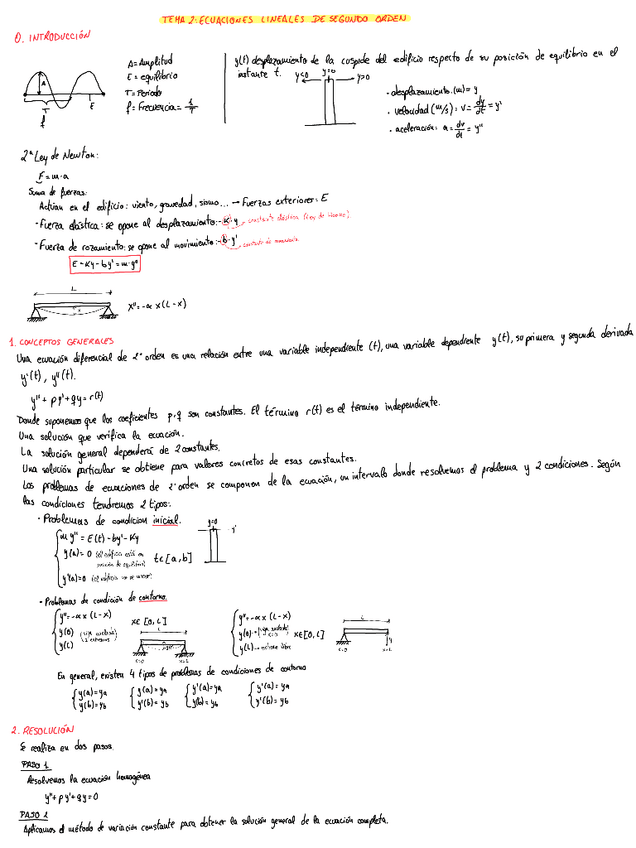 TEMA 2: ECUACIONES LINEALES DE SEGUNDO ORDEN
0. INTRODUCCIÓN
A = Amplitud
E = equilibrio
T = Periodo
f = Frecuencia = 1/T
A
E
T
f
y(t) desplazamiento de la cuspide del edificio respecto de su posición de equilibrio en el
instante t.
y<0 y=0 y>0
· desplazamiento (m) = y
· velocidad (m/s): v = dy/dt = y'
· aceleración: a = dv/dt = y''
2ª Ley de Newton:
F = m·a
Suma de fuerzas:
Actúan en el edificio: viento, gravedad, sismo... → Fuerzas exteriores: E
· Fuerza elástica: se opone al desplazamiento: -K·y
· Fuerza de rozamiento: se opone al movimiento: -b·y'
E - Ky - by' = m·y''
L
x
x'' = -α x (L-x)
1. CONCEPTOS GENERALES
Una ecuación diferencial de 2º orden es una relación entre una variable independiente (t), una variable dependiente y(t), su primera y segunda derivada
y'(t), y''(t).
y'' + py' + qy = r(t)
Donde suponemos que los coeficientes p, q son constantes. El término r(t) es el término independiente.
Una solución que verifica la ecuación.
La solución general dependerá de 2 constantes.
Una solución particular se obtiene para valores concretos de esas constantes.
Los problemas de ecuaciones de 2º orden se componen de la ecuación, un intervalo donde resolvemos el problema y 2 condiciones. Según
las condiciones tendremos 2 tipos:
· Problemas de condición inicial.
m y'' = E(t) - by' - Ky
y(a) = 0 (el edificio está en posición de equilibrio)
y'(a) = 0 (el edificio no se mueve)
t∈[a,b]
y=0
· Problemas de condición de contorno
y'' = -α x (L-x)
y(0)
y(L)
x∈[0,L]
x=0 x=L
y'' = -α x (L-x)
y(0)
y(L) → extremo libre
x∈[0,L]
L
x=0 x=L
En general, existen 4 tipos de problemas de condiciones de contorno
y(a) = ya y(a) = ya y'(a) = ya y'(a) = ya
y(b) = yb y'(b) = yb y(b) = yb y'(b) = yb
2. RESOLUCIÓN
Se realiza en dos pasos.
PASO 1
Resolvemos la ecuación homogénea
y'' + py' + qy = 0
PASO 2
Aplicamos el método de variación constante para obtener la solución general de la ecuación completa.